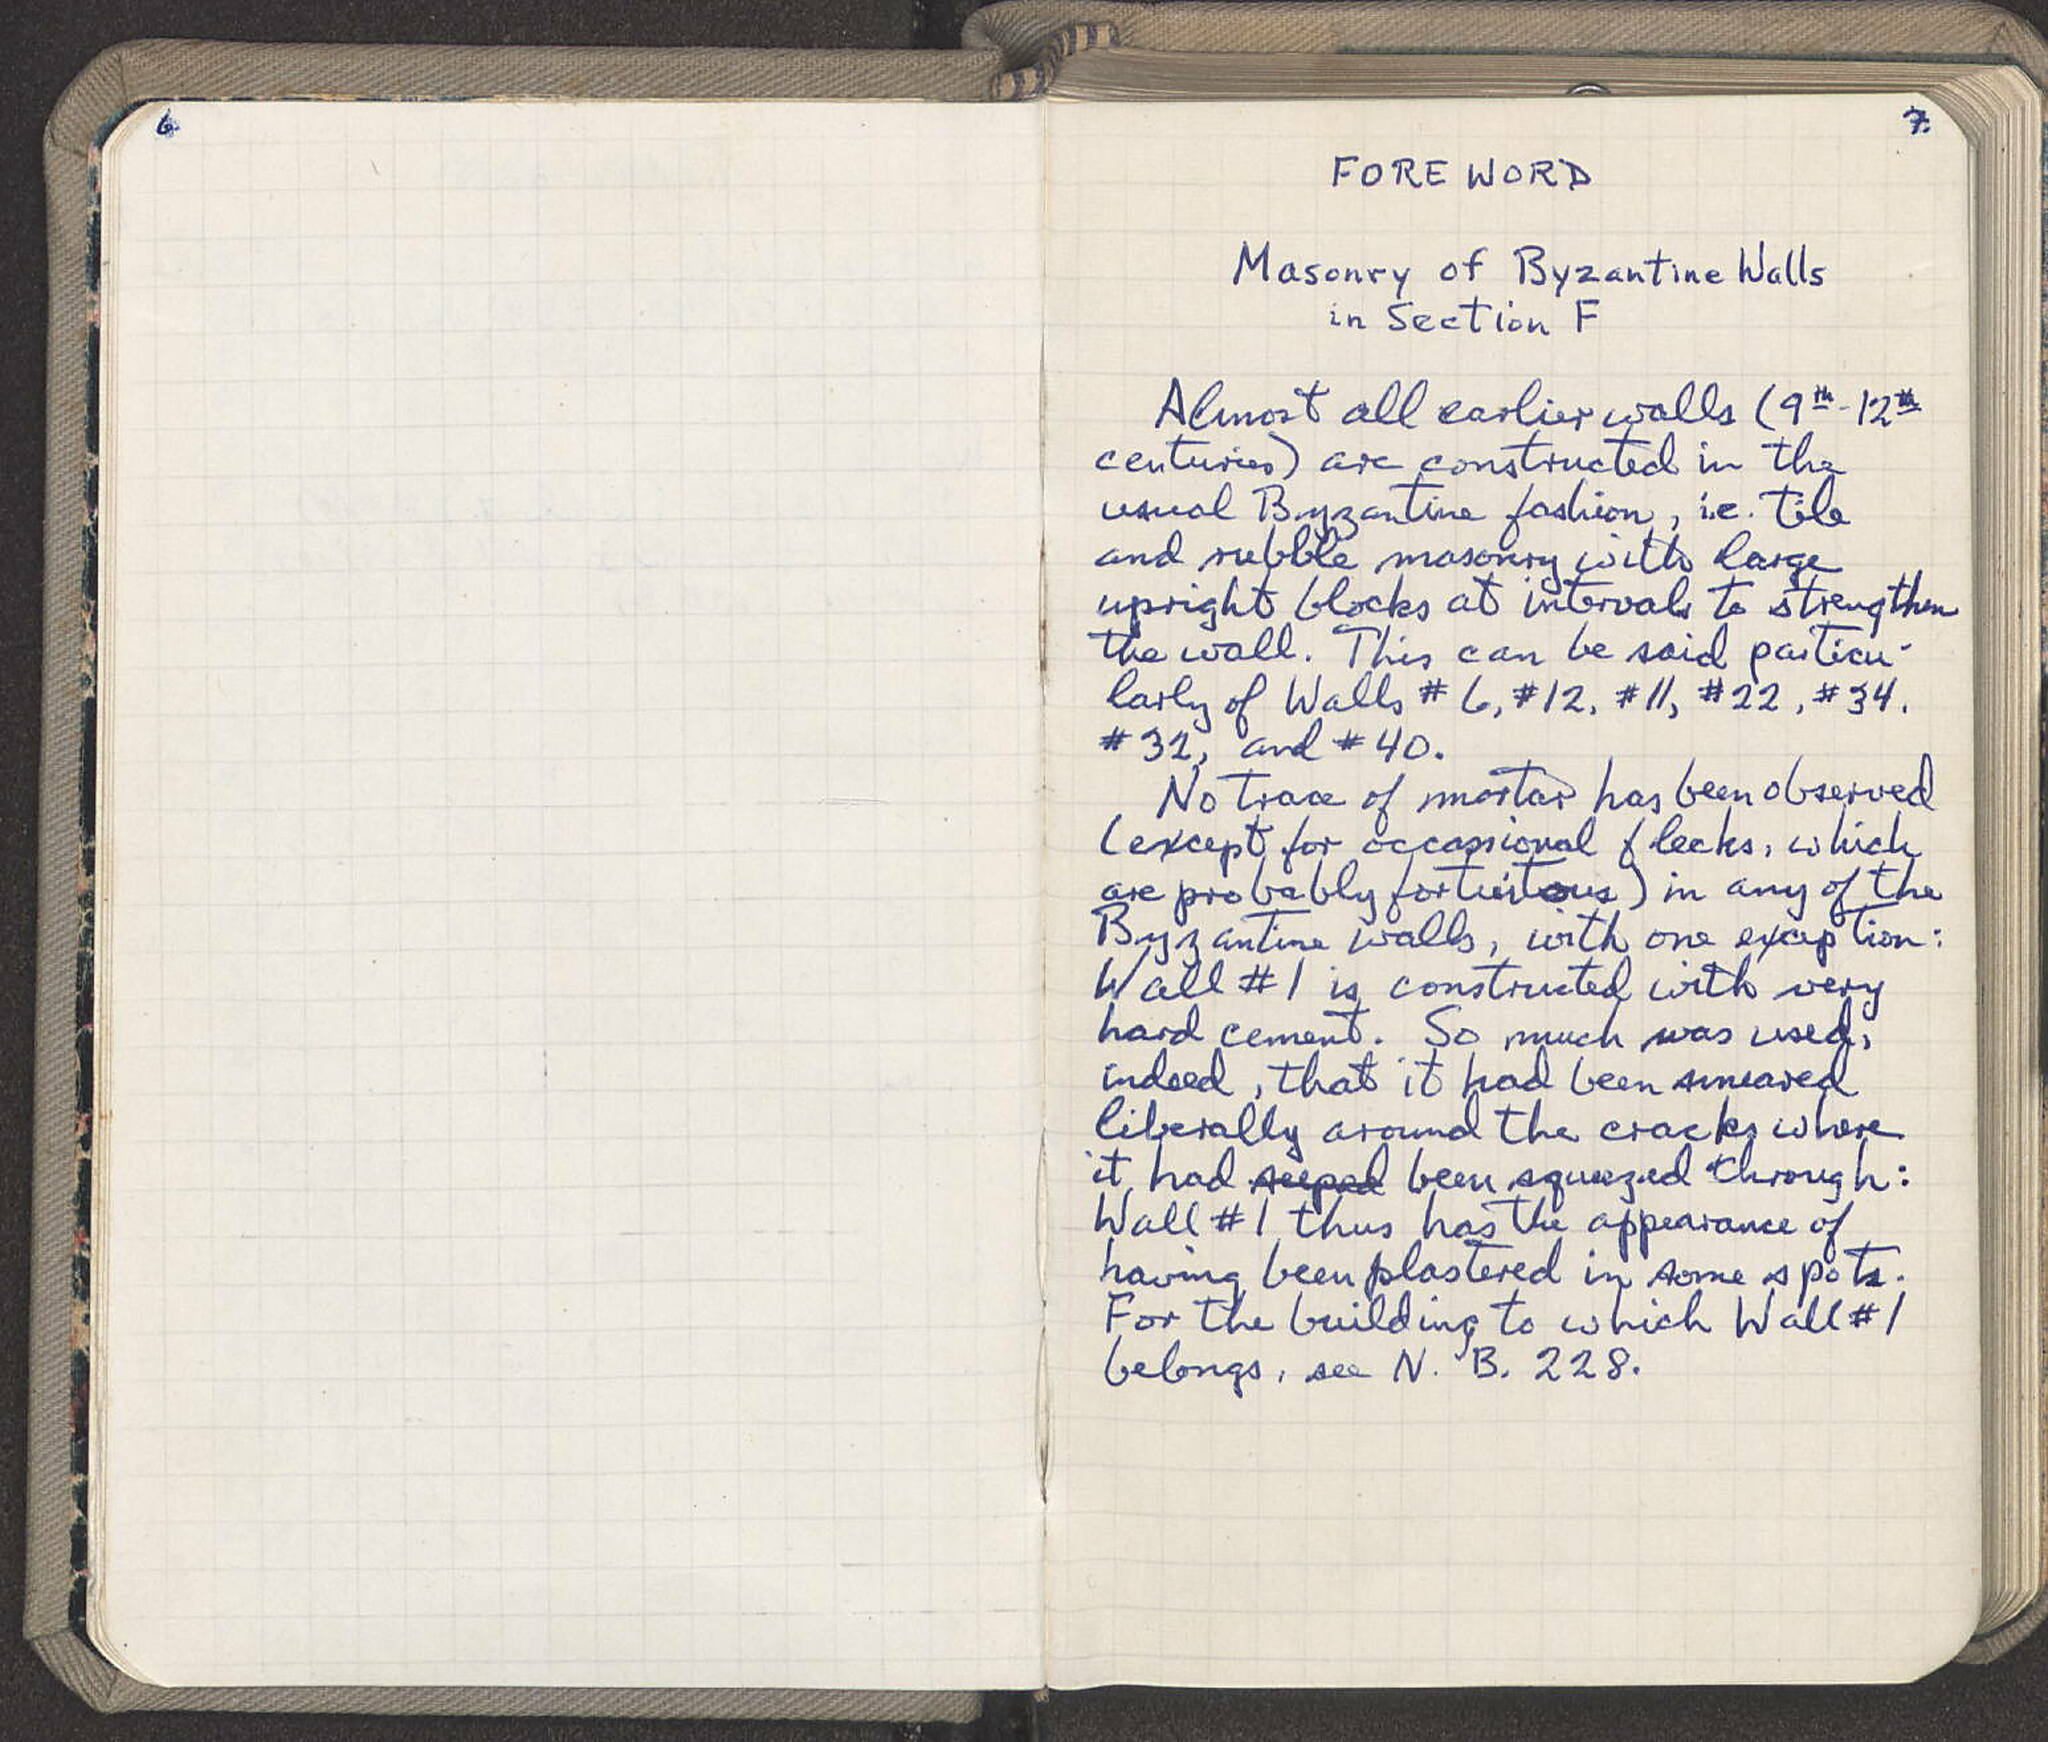 6.
7.
FOREWORD
Masonry of Byzantine Walls
in Section F
Almost all earlier walls (9th-12th
centuries) are constructed in the
usual Byzantine fashion, i.e. tile
and rubble masonry with large
upright blocks at intervals to strengthen
the wall. This can be said particu-
larly of Walls #6, #12, #11, #22, #34,
#32, and #40.
No trace of mortar has been observed
(except for occassional flecks, which
are probably fortuitous) in any of the
Byzantine walls, with one exception:
Wall #1 is constructed with very
hard cement. So much was used,
indeed, that it had been smeared
liberally around the cracks where
it had seeped been squeezed through:
Wall #1 thus has the appearance of
having been plastered in some spots.
For the building to which Wall #1
belongs, see N. B. 228.